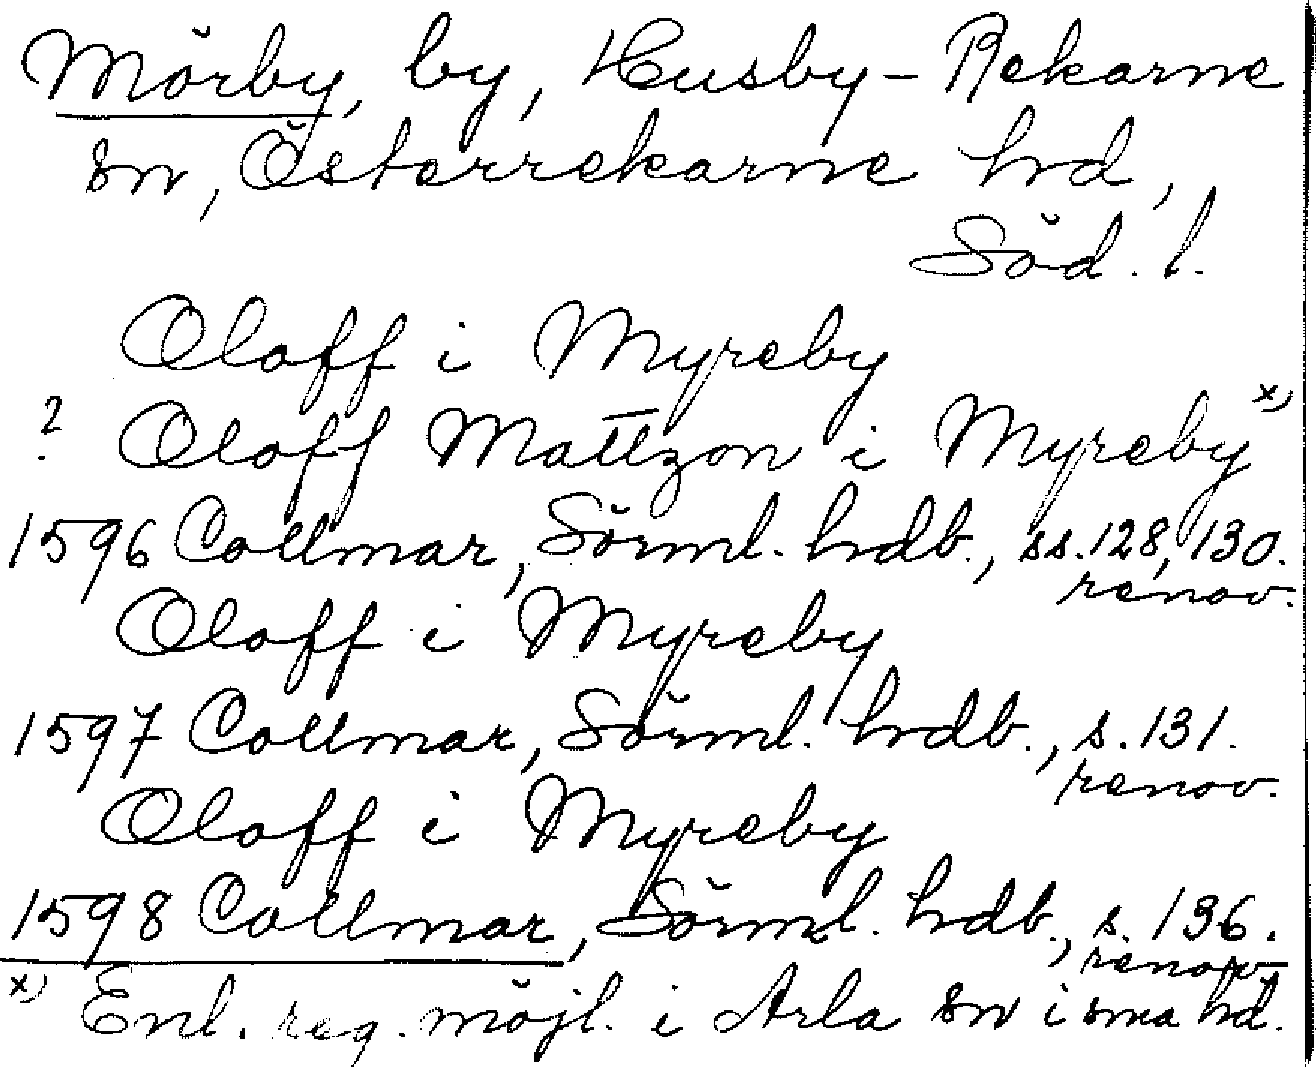 Mörby, by, Husby-Rekarne
sn, Österrekarne hd,
Söd. l.
Oloff i Myreby
? Oloff Mattzon i Myreby x)
1596 Collmar, Sörml. hdb., ss. 128, 130.
renov.
Oloff i Myreby
1597 Collmar, Sörml. hdb., s. 131.
renov.
Oloff i Myreby
1598 Collmar, Sörml. hdb., s. 136.
renov.
x) Enl. reg. möjl. i Arla sn i sma hd.